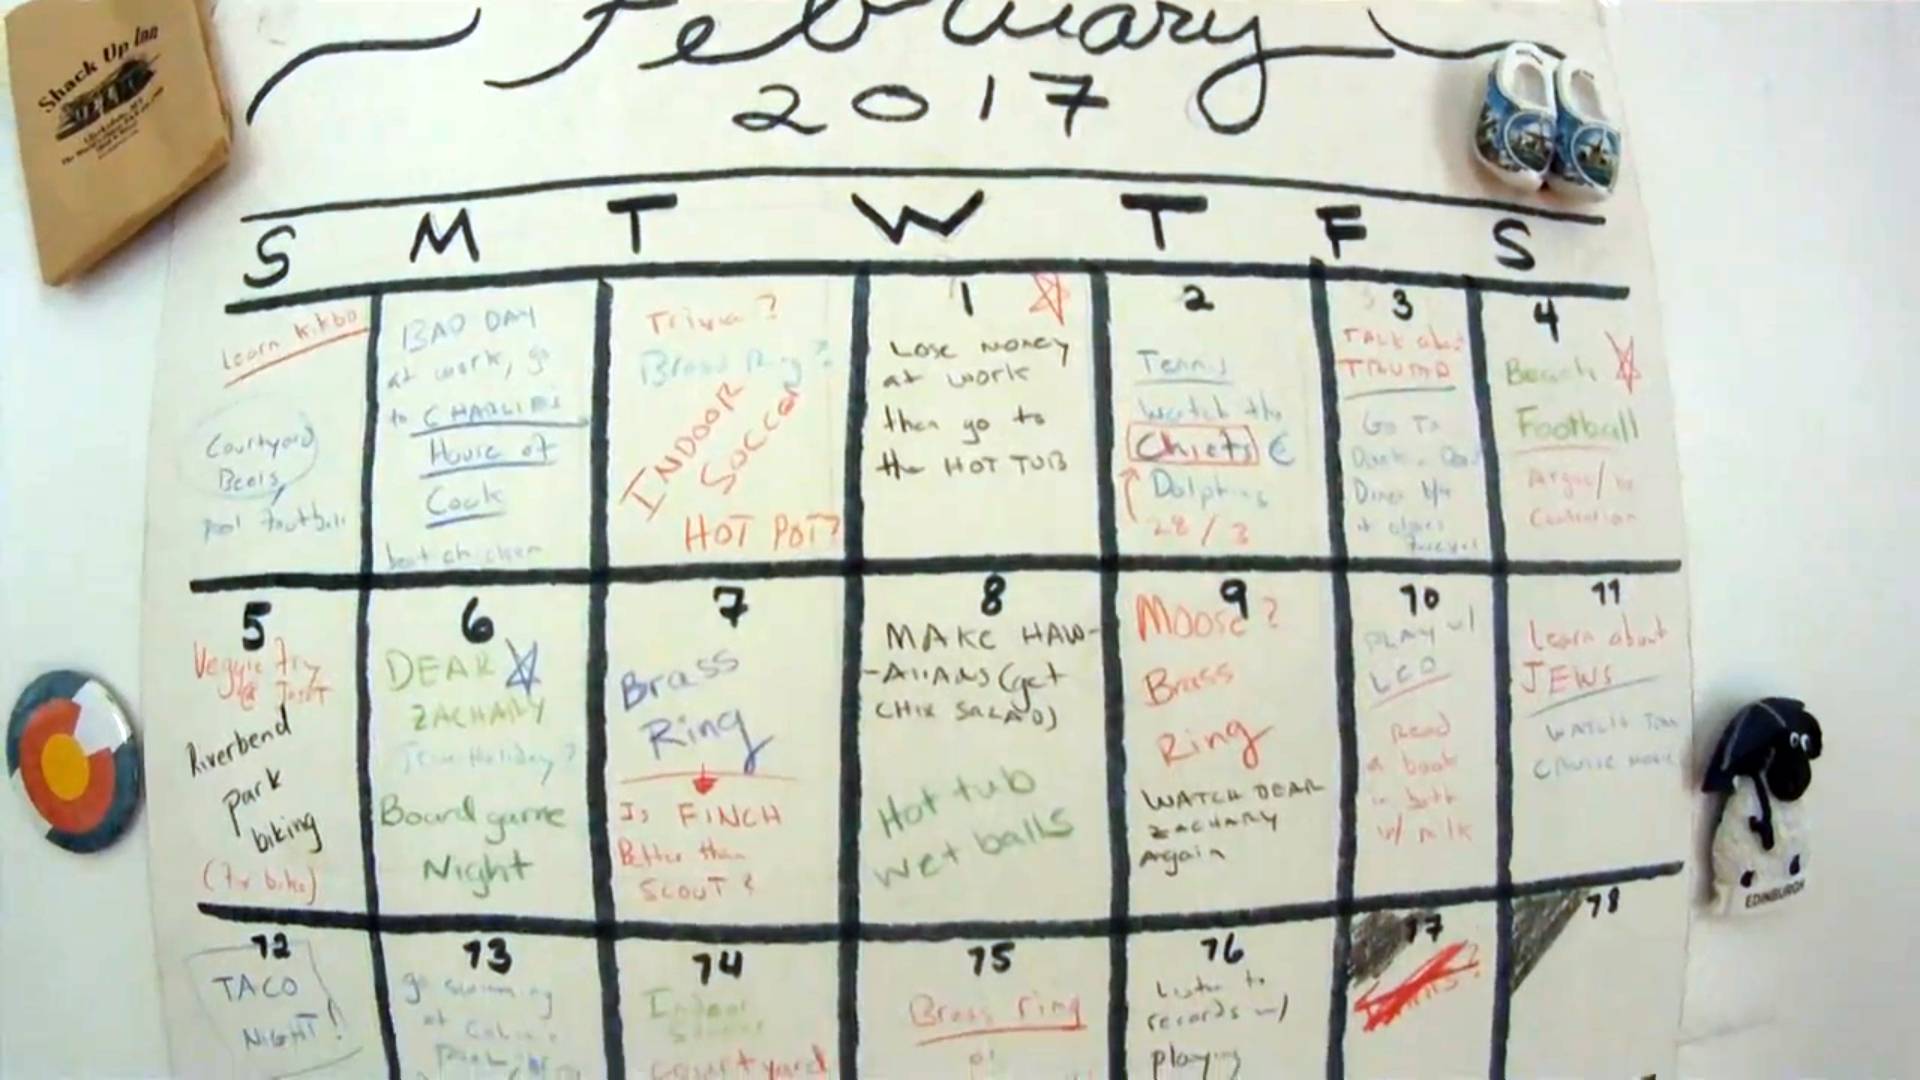 Shack Up Inn
February
2017
S M T W T F S
Learn kikbo
Courtyard
Beers
pool football
BAD DAY
at work, go
to CHARLIE'S
House of
Cock
beat chicken
Trivia?
Brass Ring?
INDOOR
SOCCER
HOT POT?
1
Lose money
at work
then go to
the HOT TUB
2
Tennis
Watch the
Chiefs
Dolphins
28/3
3
TALK about
TRUMP
Go To
4
Beach
Football
5
Veggie fry
@
Riverbend
park
biking
(fix bike)
6
DEAR
ZACHARY
Holiday?
Board game
Night
7
Brass
Ring
Is FINCH
Better than
SCOUT?
8
MAKE HAW-
-AIIANS (get
CHIX SALAD)
Hot tub
wet balls
9
Moose?
Brass
Ring
WATCH DEAR
ZACHARY
Again
10
PLAY w/
LEO
Read
a book
in bath
w/ milk
11
Learn about
JEWS
WATCH Tom
CRUISE movie
12
TACO
NIGHT!
13
go swimming
at
pool
14
Indoor
Soccer
Courtyard
15
Brass ring
16
Listen to
records w/
playing
17
18
EDINBURGH